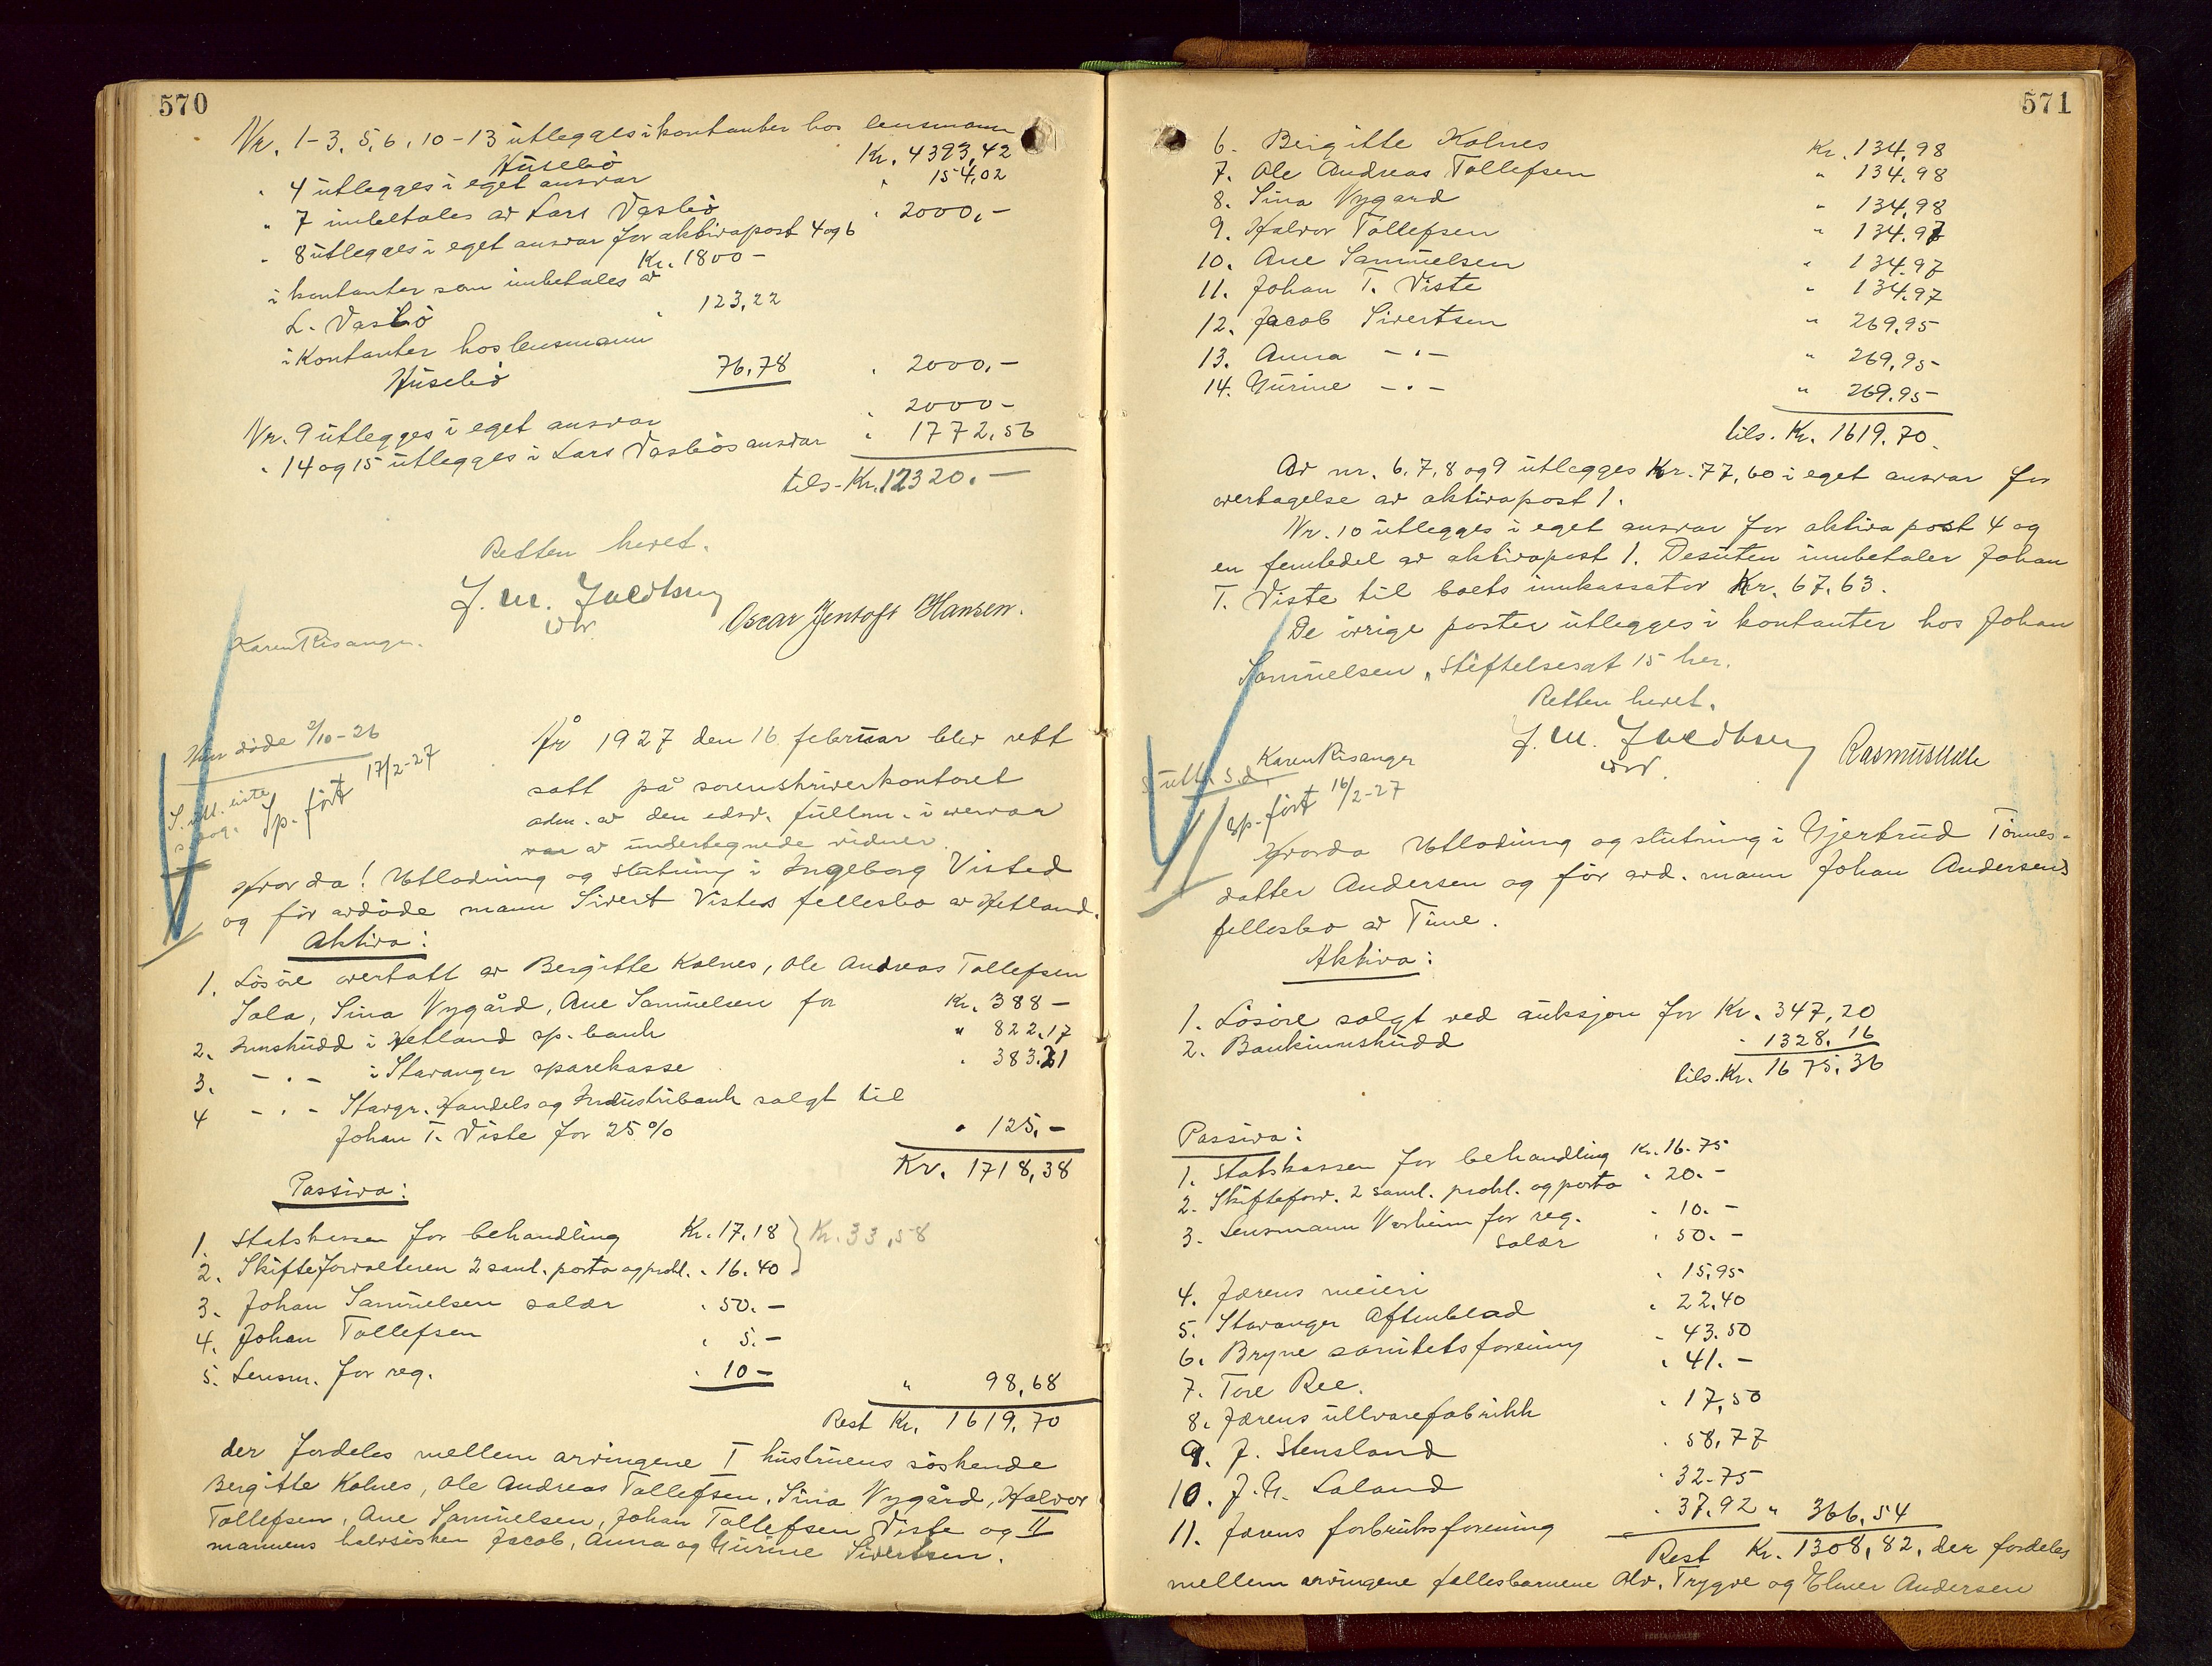 570
Nr. 1-3, 5, 6, 10-13 utlegges i kontanter hos lensmann
Husebö Kr. 4393,42
" 4 utlegges i eget ansvar " 154,02
" 7 innbetales av Lars Vasbö " 2000,-
" 8 utlegges i eget ansvar for aktivapost 4 og 6
Kr. 1800-
i kontanter som innbetales av
L. Vasbö " 123,22
i kontanter hos lensmann
Husebö 76,78 " 2000,-
Nr. 9 utlegges i eget ansvar " 2000-
" 14 og 15 utlegges i Lars Vasbös ansvar " 1772,56
tils. Kr. 12320.-
Retten hevet.
Oscar Jentoft Hansen.
Karen Risanger.
Hun döde 2/10-26
Sp. fört 17/2-27
År 1927 den 16 februar blev rett
satt på sorenskriverkontoret
adm. av den edsv. fullm. i nærvær
var av undertegnede vidner.
Hvorda! Utlodning og slutning i Ingeborg Visted
og för avdöde mann Sivert Vistes fellesbo av Hetland.
Aktiva:
1. Lösöre overtatt av Bergitte Kolnes, Ole Andreas Tollefsen
Sola, Sina Nygård, Ane Samuelsen for Kr. 388-
2. Innskudd i Hetland sp. bank " 822,17
3. - " - i Stavanger sparekasse " 383.21
4 - " - Stavgr. Handels og Industribank solgt til
Johan T. Viste for 25% " 125,-
Kr. 1718,38
Passiva:
1. Statskassen for behandling Kr. 17,18 } Kr. 33,58
2. Skifteforvalteren 2 saml. porto og prokl. " 16.40
3. Johan Samuelsen salær " 50.-
4. Johan Tollefsen " 5.-
5. Lensm. for reg. " 10- " 98,68
Rest Kr. 1619,70
der fordeles mellem arvingene I hustruens söskende
Bergitte Kolnes, Ole Andreas Tollefsen, Sina Nygård, Halvor
Tollefsen, Ane Samuelsen, Johan Tollefsen Viste og II
mannens halvsösken Jacob, Anna og Gurine Sivertsen.
571
6. Bergitte Kolnes Kr. 134,98
7. Ole Andreas Tollefsen " 134.98
8. Sina Nygard " 134,98
9. Halvor Tollefsen " 134.97
10. Ane Samuelsen " 134.97
11. Johan T. Viste " 134.97
12. Jacob Sivertsen " 269.95
13. Anna - " - " 269.95
14. Gurine - " - " 269.95
tils. Kr. 1619.70
Av nr. 6, 7, 8 og 9 utlegges Kr. 77,60 i eget ansvar for
overtagelse av aktivapost 1.
Nr. 10 utlegges i eget ansvar for aktivapost 4 og
en femtedel av aktivapost 1. Desuten innbetaler Johan
T. Viste til boets innkassator Kr. 67.63.
De övrige poster utlegges i kontanter hos Johan
Samuelsen, Stiftelsesgt 15 her.
Retten hevet.
Karen Risanger
Sp. fört 16/2-27
Hvorda Utlodning og slutning i Gjertrud Tönnes-
datter Andersen og för avd. mann Johan Andersens
fellesbo av Time.
Aktiva:
1. Lösöre solgt ved auksjon for Kr. 347,20
2. Bankinnskudd " 1328,16
tils. Kr. 1675,36
Passiva:
1. Statskassen for behandling Kr. 16.75
2. Skifteforv. 2 saml. prokl. og porto " 20.-
3. Lensmann Varheim for reg. " 10.-
Salær " 50.-
4. Jærens meieri " 15,95
5. Stavanger Aftenblad " 22,40
6. Bryne sanitetsforening " 43.50
7. Tore Ree. " 41.-
8. Jærens ullvarefabrikk " 17,50
9. J. Stensland " 58,77
10. J. G. Laland " 32.75
11. Jærens forbruksforening " 37,92 " 366,54
Rest Kr. 1308,82, der fordeles
mellem arvingene fellesbarnene Olv. Trygve og Elmer Andersen